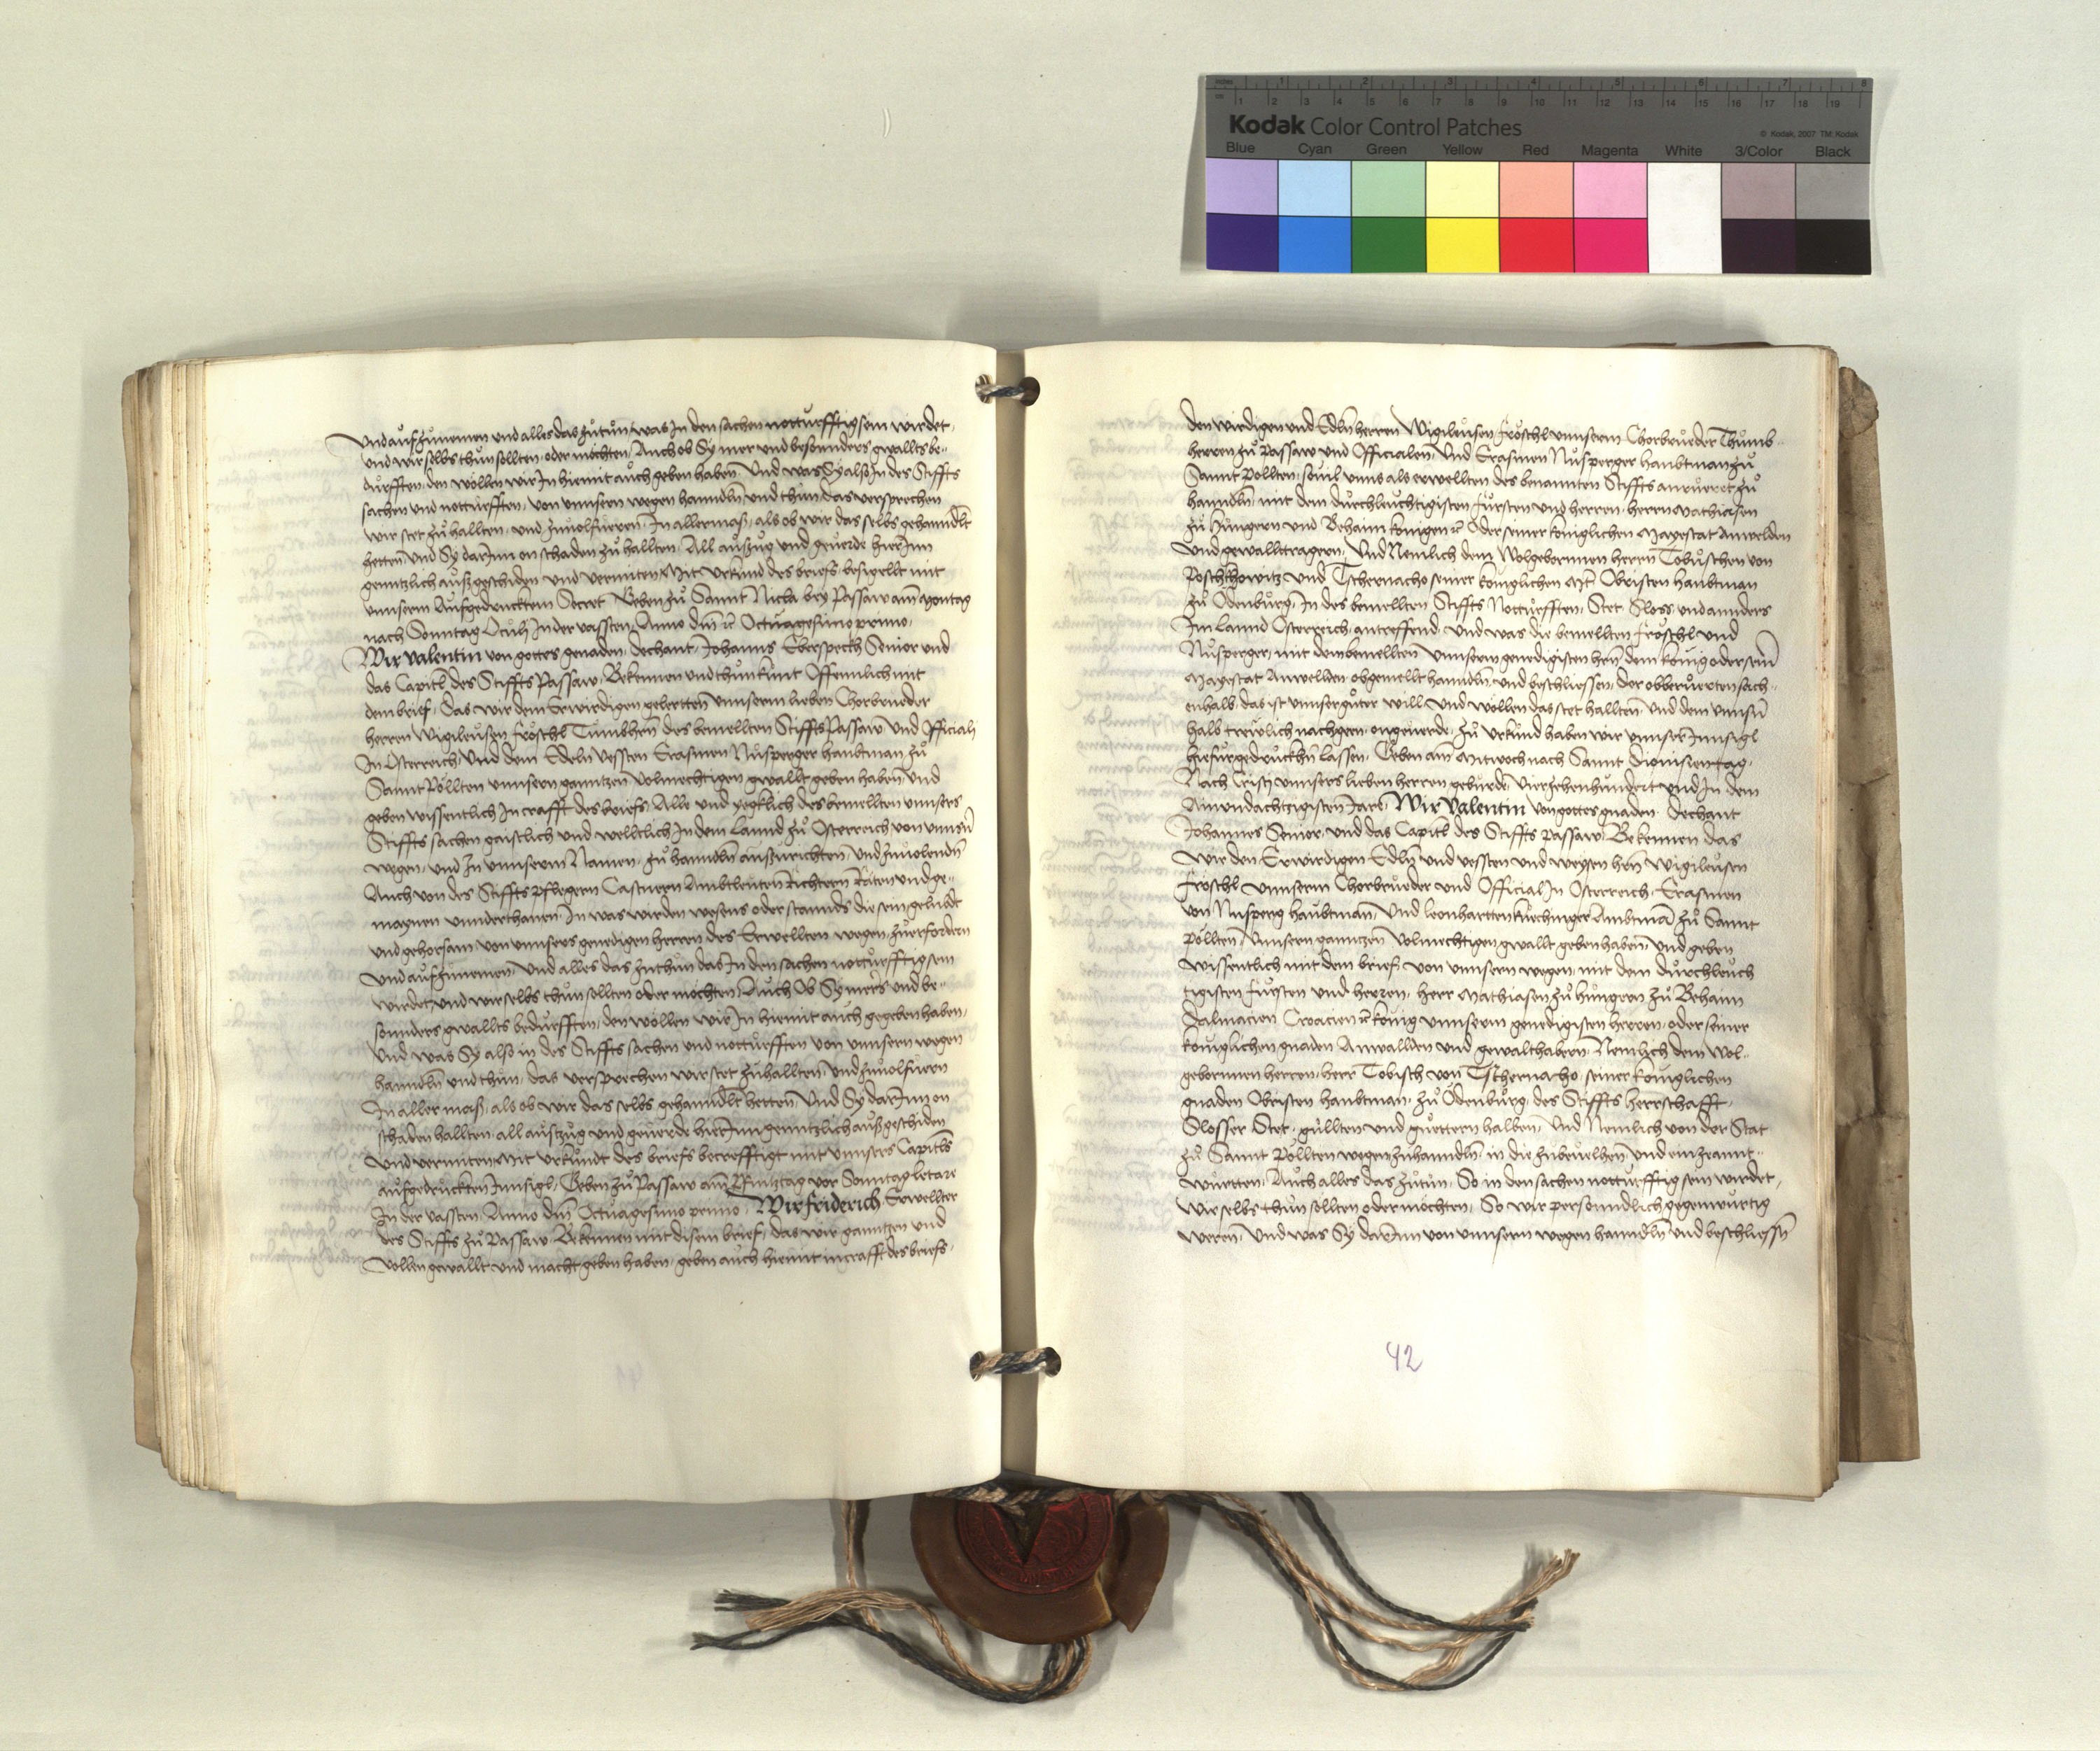 Kodak Color Control Patches
© Kodak, 2007 TM: Kodak
Blue Cyan Green Yellow Red Magenta White 3/Color Black
Und aufzunemen und alles das zůtůn, was In den sachen notturfftig sein wirdet,
und wir selbs thůn sollten, oder möchten, Auch ob Sy mer und besonnders gwallts be-
dürfften, den wöllen wir In hiemit auch geben haben, Und was Sy also In des Stiffts
sachen und notturfften, von unnsern wegen hanndln und thůn, das versprechen
wir stet zů hallten, und zuuolfüeren, In allermaß, als ob wir das selbs gehanndlt
hetten, Und Sy darInn on schaden zů hallten, All auszug und geuerde hierInn
genntzlich außgeschiden und vermiten, Mit urkund des briefs besigellt mit
unnserm Aufgedrucktem Secret Geben zů Sannt Nicla bey Passaw am Montag
nach Sonntag Oculi In der vassten, Anno dm̄ ꝛc Octuagesimo primo,
Wir Valentin von gottes genaden, dechant, Johanns Eberspeckh Senior und
das Capitl des Stiffts Passaw, Bekennen und thůn kunt Offennlich mit
dem brief, Das wir dem Erwirdigen gelertten unnserm lieben Chorbrueder
herren Wigileusen Fröschl Tumbhern des bemellten Stiffts Passaw, und Official
In Osterreich, Und dem Edeln vessten Erasmen Nusperger haubtman zů
Sannt Pöllten unnsern ganntzen Volmechtigen gwallt geben haben, und
geben wissentlich In crafft des briefs, Alle und yegklich des bemellten unnsers
Stiffts sachen gaistlich und welltlich In dem Lannd zů Osterreich von unnsn̄
wegen, und In unnserm Namen, zů hanndln außzurichten, und zuuolenden
Auch von des Stiffts Pflegern Casstnern Ambtleuten Richtern Räten und ge-
maynen unnderthanen, In was wirden wesens oder stannds die sein gelubdt
und gehorsam von unnsers genedigen herren des Erwellten wegen, zuerfordern
und aufzunemen, Und alles das zuthůn das In den sachen notturfftig sein
wirdet, und wir selbs thůn sollten oder möchten, Auch Ob Sy mers und be-
sonnders gwallts bedurfften, den wöllen wir In hiemit auch gegeben haben,
Und was Sy also in des Stiffts sachen und notturfften von unnsern wegen
hanndln und thůn, das versprechen wir stet zuhallten, und zuuolfüern
In aller maß, als ob wir das selbs gehanndlt hetten, Und Sy darInn on
schaden hallten, all auszůg und geuerde hierInn genntzlich außgeschiden
und vermiten, Mit urkundt des briefs becrefftigt mit unnsers Capitls
aufgedruckten Innsigl, Geben zů Passaw am Pfintztag vor Sonntag letare
In der vassten, Anno dm̄ Octuagesimo primo, Wir Friderich Erwellter
des Stiffts zů Passaw, Bekennen mit disem brief, das wir ganntzen und
vollen gewallt und macht geben haben, geben auch hiemit in crafft des briefs,
den wirdigen und Edln herren Wigileusen Fröschl unnserm Chorbrueder Thumb-
herren zů Passaw und Officialen, Und Erasmen Nusperger haubtman zů
Sannt Pöllten, souil unns als erwellten des benannten Stiffts anrueret zů
hanndln mit dem durchleuchtigisten fürsten und herren, herrn Mathiasen
zů Hungern und Behaim könign ꝛc Oder seiner königlichen Mayestat Anwelden
und gewallttragern, Und Nemlich dem Wolgebornnen herrn Tobuschen von
Poschkowitz und Tschernacho seiner königlichen Mt Obristen haubtman
zů Odenburg, In des bemellten Stiffts Notturfften, Stet, Sloss, und annders
Im Lannd Osterreich, antreffend, und was die bemellten Fröschl und
Nusperger, mit dem bemellten unnserm genedigisten hrn̄, dem konig oder seinr̄
Mayestat Anwelden obgemellt hanndln, und beschliessen, der obberuerten sach-
enhalb, das ist unnser gůter will, und wöllen das stet hallten, und dem unnsn̄
halb treulich nachgeen, ongeuerde, zů urkund haben wir unnser Innsigl
hiefurgedrucken lassen, Geben am Mitwoch nach Sannt Dionisien tag,
Nach Cristi unnsers lieben herren geburde, Vierzehenhundert und In dem
Ainundachtzigisten Jare, Wir Valentin von gottes gnaden dechant
Johannes Senior, und das Capitl des Stiffts passaw, Bekennen das
wir den Erwirdigen Edln und vessten und weysen hrn̄ Wigileusen
Fröschl unnserm Chorbrueder und Official In Osterreich, Erasmen
von Nusperg haubtman, Und leonhartten kirchinger Ambtman̄ zů Sannt
pöllten, Unnsern ganntzen Volmechtigen gwallt geben haben, und geben
wissentlich mit dem brief, von unnsern wegen, mit dem durchleuch
tigisten fürsten und herren, herr Mathiasen zů hungern zů Behaim
Dalmacien Croacien ꝛc konig unnserm genedigisten herren, oder seiner
königlichen gnaden Anwallden und gewalthabern Nemlich dem Wol-
gebornnen herren, herr Tobisch von Tschernacho, seiner königlichen
gnaden Obristen haubtman, zů Odenburg, des Stiffts herrschafft,
Slosser Stet, gullten und guettern halben, Und Nemlich von der Stat
zů Sannt Pöllten wegen zuhanndln, in die zubeuelhen, und einzeannt-
wurtten, Auch alles das zůtůn, So in den sachen notturfftig sein wirdet,
wir selbs thůn sollten oder möchten, So wir personndlich gegenwurtig
weren, Und was Sy darInn von unnsern wegen hanndln und beschliessn̄
42